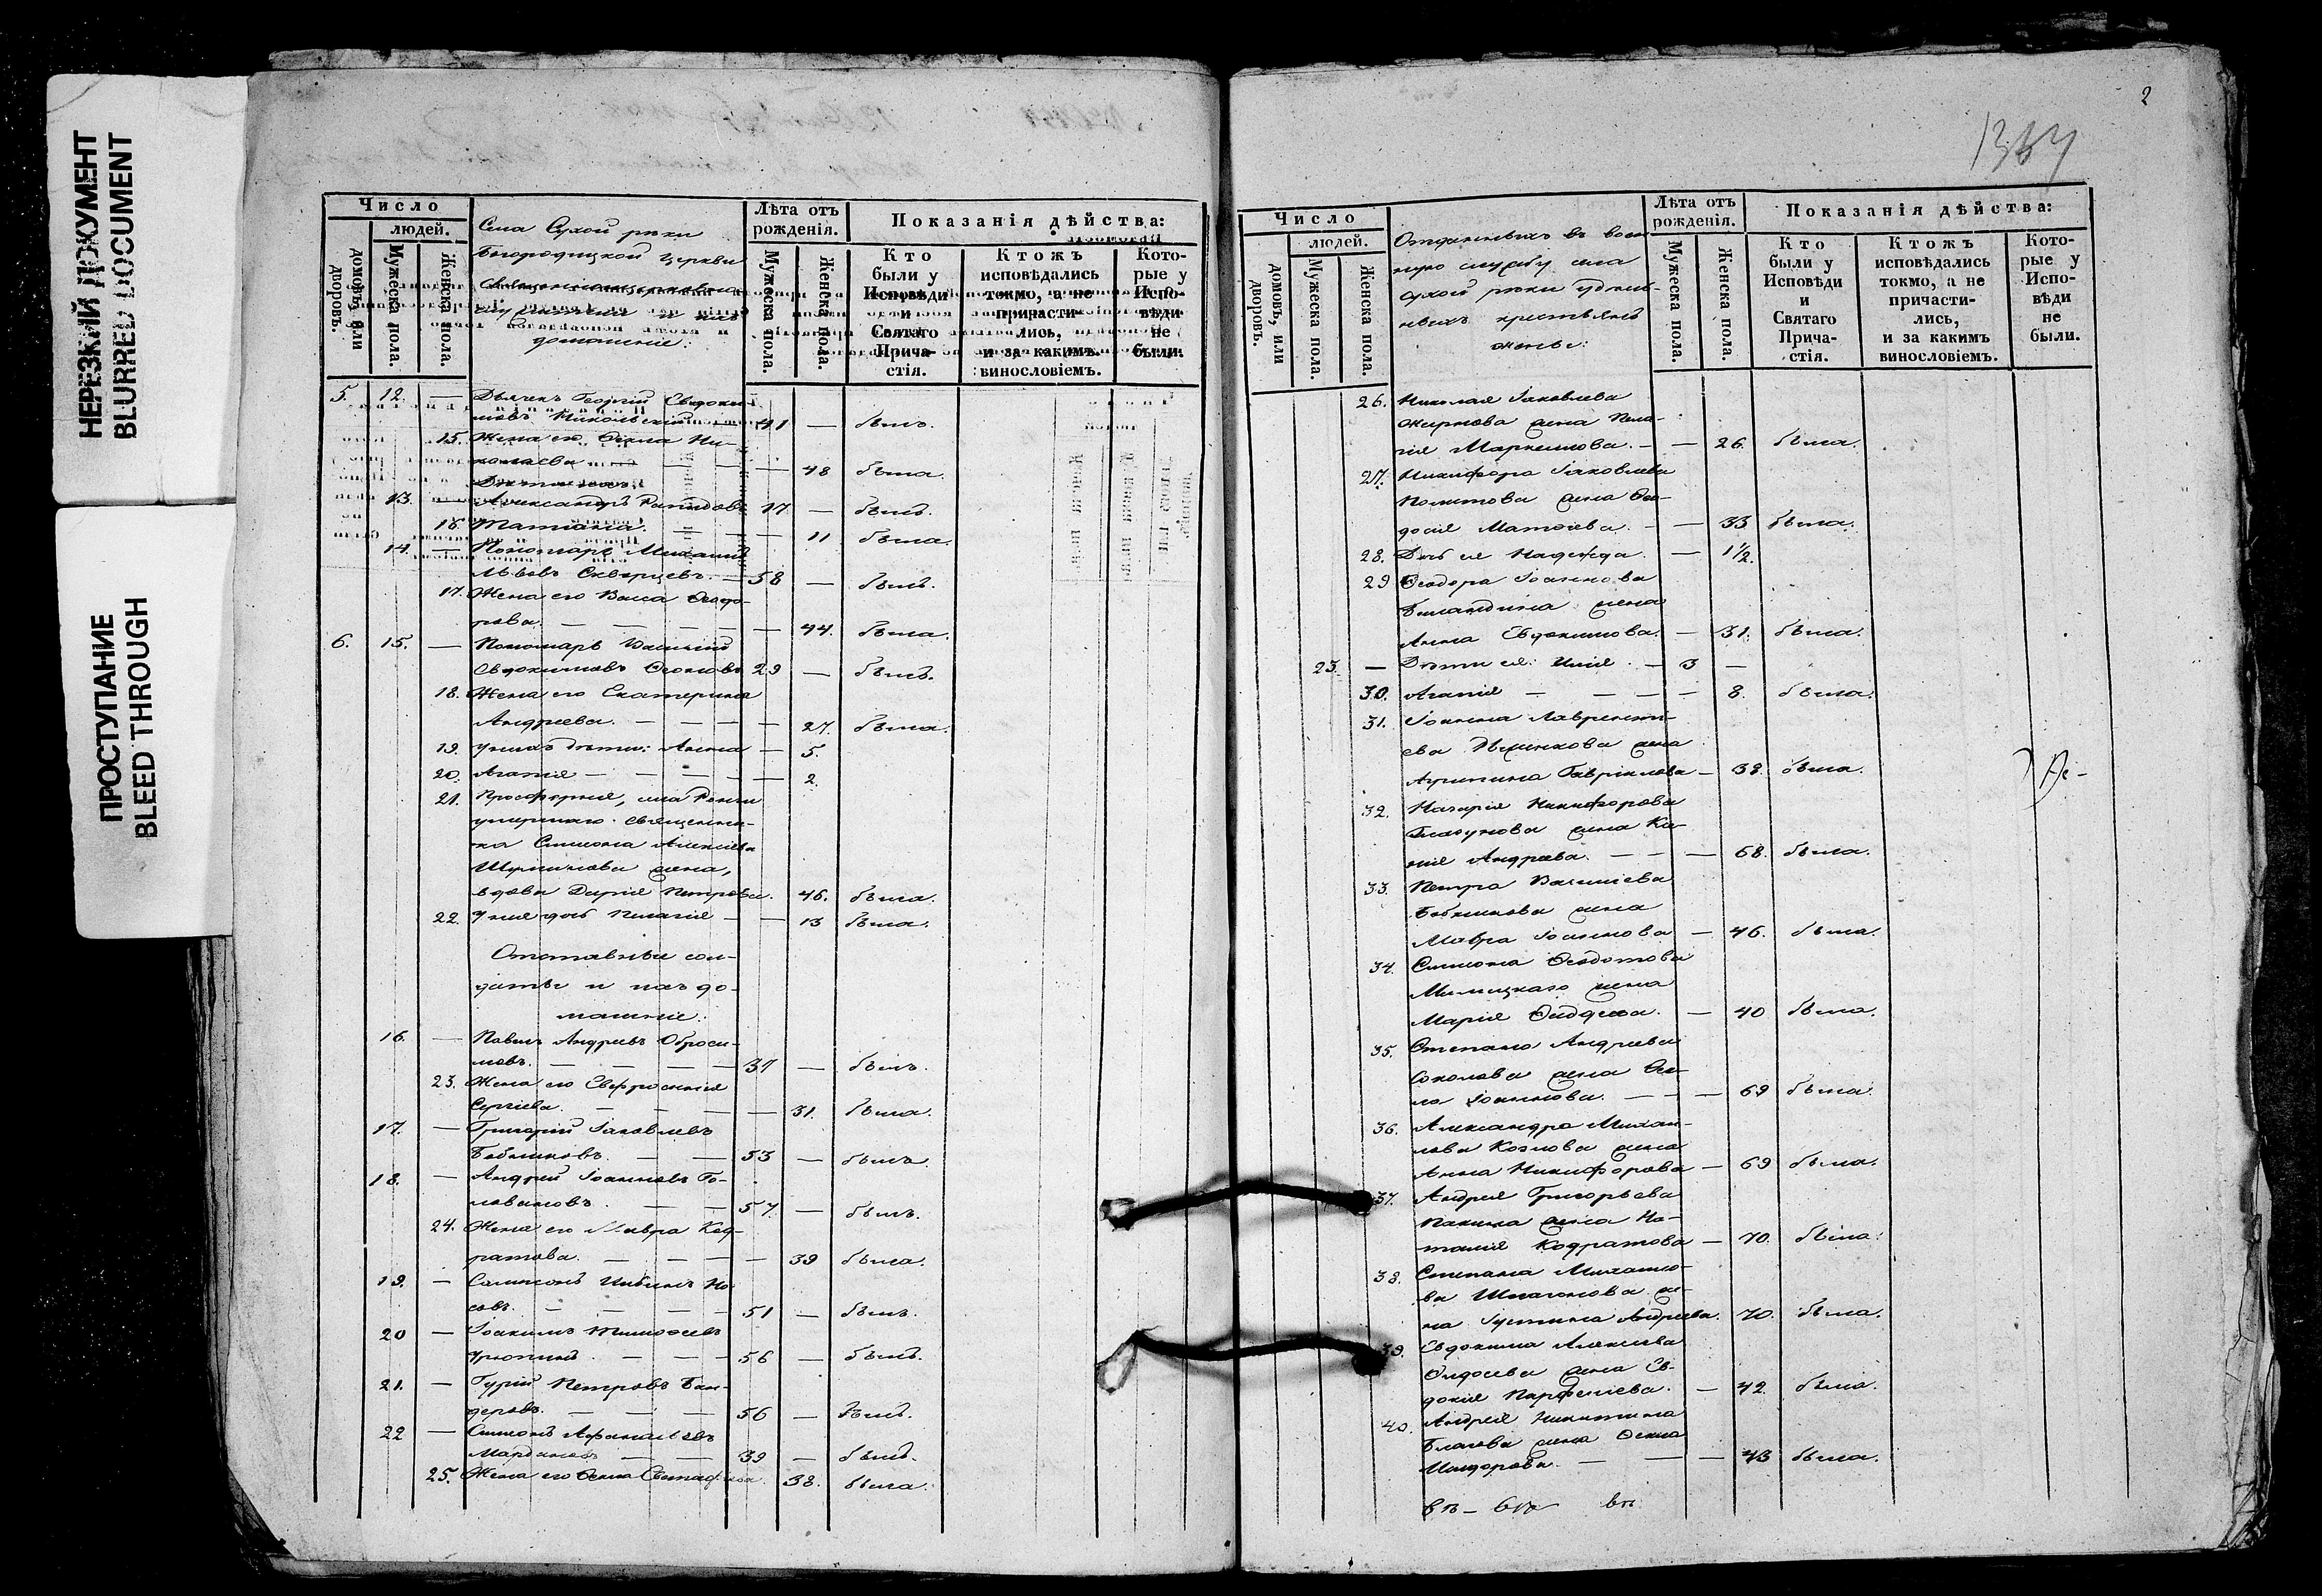 НЕРЕЗКИЙ ДОКУМЕНТ
BLURRED DOCUMENT
ПРОСТУПАНИЕ
BLEED THROUGH
Число
людей.
домовъ, или дворовъ.
Мужеска пола.
Женска пола.
Села Сухой рѣки
Богородицкой церкви
домашніе:
Лѣта отъ рожденія.
Мужеска пола.
Женска пола.
Показанія дѣйства:
Кто были у Исповѣди и Святаго Причастія.
Ктожъ исповѣдались токмо, а не причастились, и за какимъ винословіемъ.
Которые у Исповѣди не были.
5. 12. — Дьячекъ Георгій Евдоки-
мовъ Никольскій 41 — былъ.
15. Жена его Ѳекла Ни-
колаева — 48 была.
13. Александръ 17 — былъ.
16. Татіана. — 11 была.
14. — Пономарь Михаилъ
Львовъ Скворцевъ. — 58 — былъ.
17. Жена его Васса Ѳеодо-
рова. — 44. была.
6. 15. — Пономарь Василій
Евдокимовъ 29 — былъ.
18. Жена его Екатерина
Андреева. — 27. была.
19. У нихъ дѣти: Анна — 5.
20. Агапія — 2.
21. Просфирня, села
умершаго священни-
ка Симеона Алексіева
жена,
вдова Дарія Петрова. 46. была.
22. У нея дочь Пелагія — 13 была.
Отставные сол-
даты и ихъ до-
машніе:
16. — Павелъ Андреевъ Обросимовъ. — 37 — былъ.
23. Жена его Евфросинія
Сергіева. — 31. была.
17. — Григорій Іаковлевъ
Бобликовъ. — 53 — былъ.
18. — Андрей Іоанновъ Го-
ловановъ. — 57. — былъ.
24. Жена его Мавра Код-
ратова. — 39 была.
19. — Сампсонъ Но-
совъ. — 51 — былъ.
20 — Іоакимъ Тимоѳеевъ
Урюпинъ. — 56 — былъ.
21. — Гурій Петровъ Бан-
деровъ. — 56 — былъ.
22 — Симеонъ Аѳанасьевъ
39 — былъ.
25. Жена его Ѳекла 38. была.
2
Число
людей.
домовъ, или дворовъ.
Мужеска пола.
Женска пола.
Отданныхъ въ воен-
ную службу села
Сухой рѣки удѣль-
ныхъ крестьянъ
жены:
Лѣта отъ рожденія.
Мужеска пола.
Женска пола.
Показанія дѣйства:
Кто были у Исповѣди и Святаго Причастія.
Ктожъ исповѣдались токмо, а не причастились, и за какимъ винословіемъ.
Которые у Исповѣди не были.
26. Николая Іаковлева
Жирнова жена Пела-
гія Маркеллова. — 26. была.
27. Никифора Іаковлева
Политова жена Ѳео-
досія Матѳеева. — 33 была.
28. Дочь ея Надежда. — 1½.
29 Ѳеодора Іоаннова
жена
Анна Евдокимова. — 31. была.
23. — Дѣти ея: Илія. — 3 —
30. Агапія — 8. была.
31. Іоанна Лавренті-
ева жена
Агрипина Гавріилова — 38. была.
32. Назарія Никифорова
Глазунова жена Ксе-
нія Андреева. — 68. была.
33. Петра Василіева
Бобликова жена
Мавра Іоаннова — 46. была.
34. Симеона Ѳеодотова
жена
Марія — 40 была.
35. Степана Андреева
Соколова жена Ѳек-
ла Іоаннова. — 69 была.
36. Александра Михаи-
лова Козлова жена
Анна Никифорова — 69 была.
37. Андрея Григорьева
Панина жена На-
талія Кодратова — 70. была.
38. Степана Михаило-
ва же-
на Іустина Андреева. 70. была.
39. Евдокима Алексіева
жена Ев-
докія Парѳеніева. — 42. была.
40. Андрея Никитина
Благова жена Ѳекла
— 43 была.